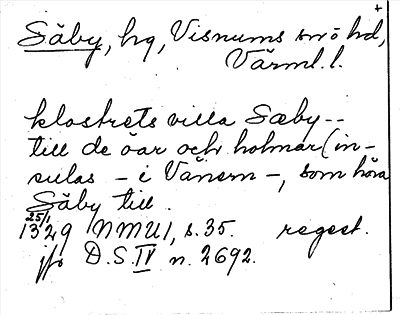 Säby, hg, Visnums sn ö hd,
Värml. l.
klostrets villa Sæby --
till de öar och holmar (in-
sulas - i Vänern -, som höra
Säby till.
25/1
1329 NMU1, s. 35. regest.
jfr D.S. IV n. 2692.